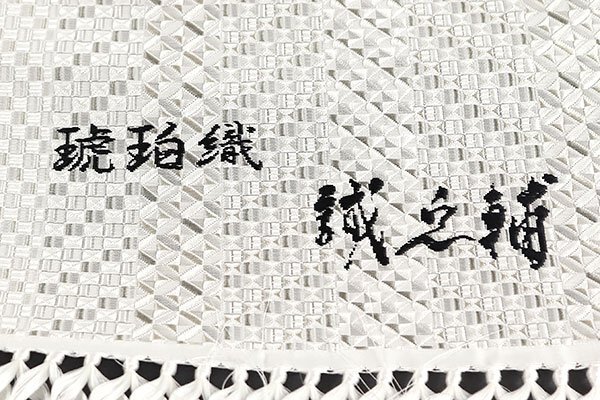 琥珀織
誠之輔